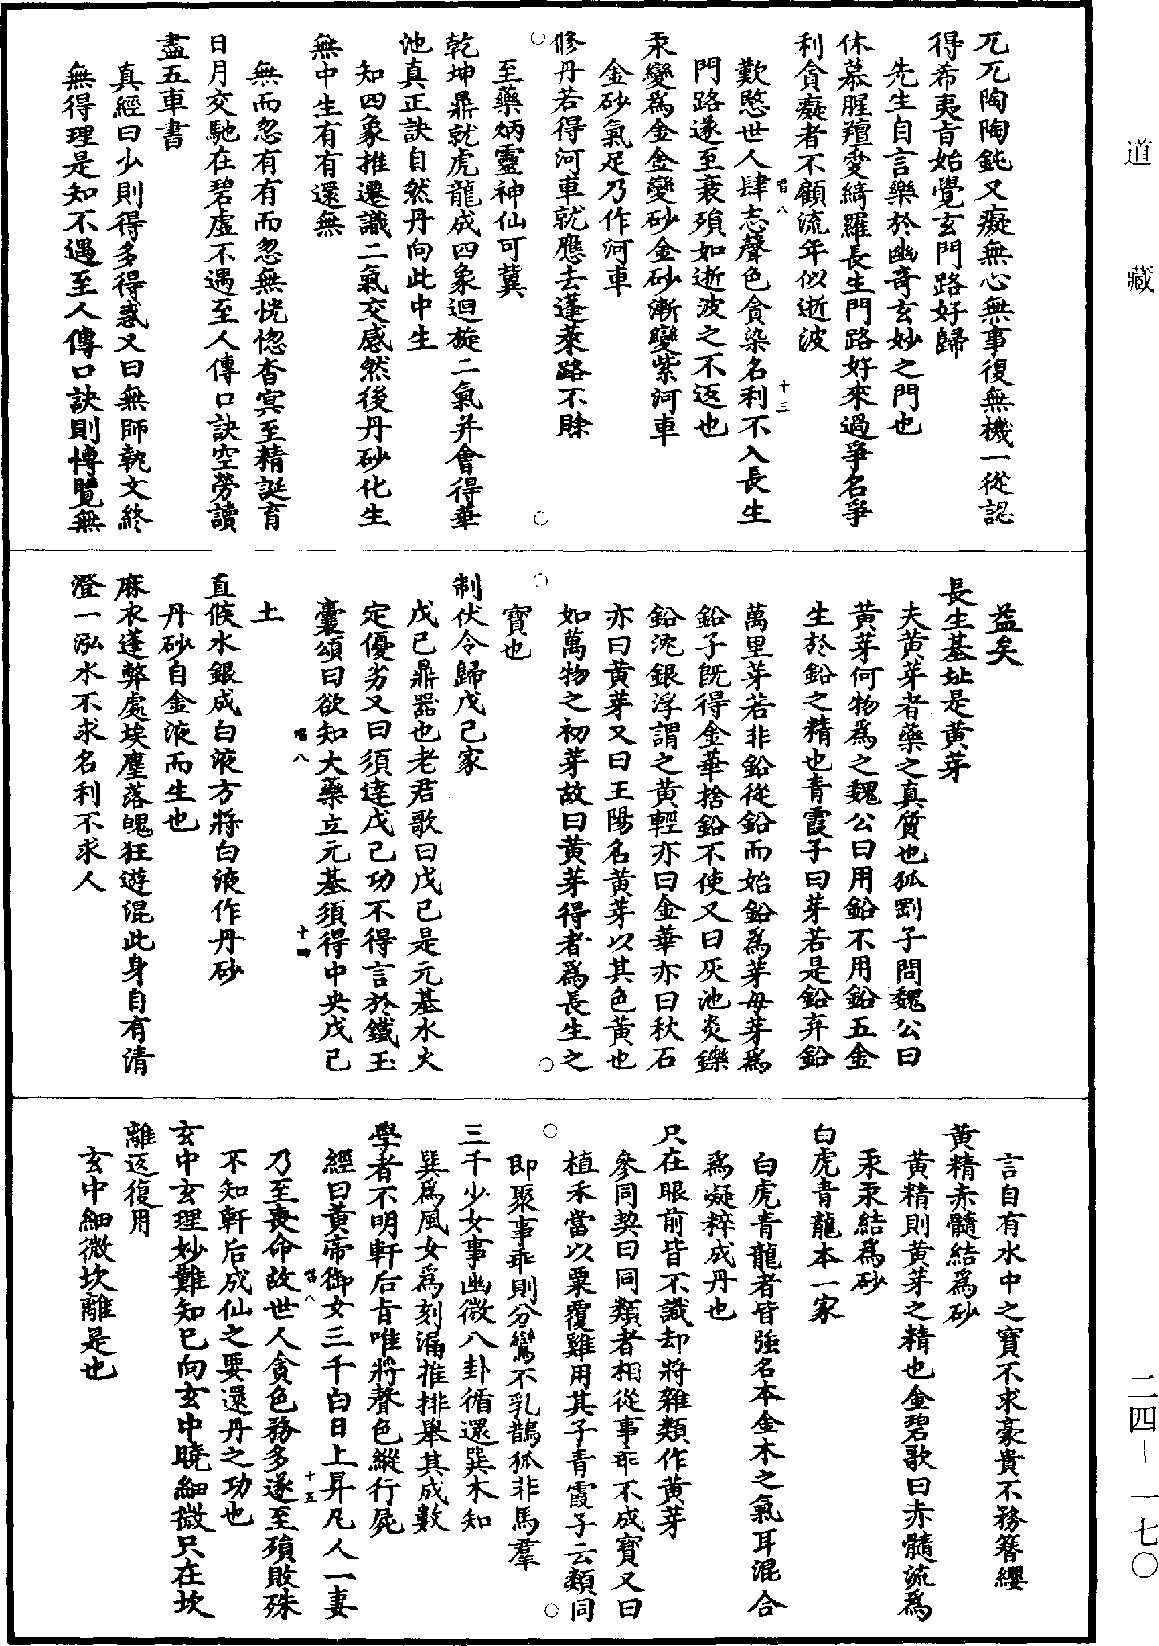 道藏
兀兀陶陶鈍又癡無心無事復無機一從認
得希夷旨始覺玄門路好歸
先生自言樂於幽奇玄妙之門也
休慕腥羶愛綺羅長生門路好來過爭名爭
利貪癡者不顧流年似逝波
歎愍世人肆志聲色貪染名利不入長生
唱八
十三
門路遂至衰殞如逝波之不返也
汞變為金金變砂金砂漸變紫河車
金砂氣足乃作河車
修丹若得河車就應去蓬萊路不賒
至藥炳靈神仙可冀
乾坤鼎就虎龍成四象迴旋二氣并會得華
池真正訣自然丹向此中生
知四象推遷識二氣交感然後丹砂化生
無中生有有還無
無而忽有有而忽無恍惚杳冥至精誕育
日月交馳在碧虛不遇至人傳口訣空勞讀
盡五車書
真經曰少則得多得惑又曰無師執文終
無得理是知不遇至人傳口訣則博覽無
益矣
長生基址是黃芽
夫黃芽者藥之真質也狐剛子問魏公曰
黃芽何物為之魏公曰用鉛不用鉛五金
生於鉛之精也青霞子曰芽若是鉛弃鉛
萬里芽若非鉛從鉛而始鉛為芽母芽為
鉛子旣得金華捨鉛不使又曰灰池炎鑠
鉛沈銀浮謂之黃輕亦曰金華亦曰秋石
亦曰黃芽又曰王陽名黃芽以其色黃也
如萬物之初芽故曰黃芽得者為長生之
寶也
制伏令歸戊己家
戊己鼎器也老君歌曰戊己是元基水火
定優劣又曰須達戊己功不得言於鐵玉
壼頌曰欲知大藥立元基須得中央戊己
唱八
十四
土
直候水銀成白液方將白液作丹砂
丹砂自金液而生也
麻衣蓬弊處埃塵落魄狂遊混此身自有清
澄一泓水不求名利不求人
言自有水中之寶不求豪貴不務簪纓
黃精赤髓結為砂
黃精則黃芽之精也金碧歌曰赤髓流為
汞汞結為砂
白虎青龍本一家
白虎青龍者皆強名本金木之氣耳混合
為凝粹成丹也
只在眼前皆不識却將雜類作黃芽
參同契曰同類者相從事乖不成寶又曰
植禾當以粟覆雞用其子青霞子云類同
即聚事乖則分鸞不乳鵲狐非馬羣
三千少女事幽微八卦循還巽木知
巽為風女為刻漏推排舉其成數
學者不明軒后旨唯將聲色縱行屍
經曰黃帝御女三千白日上昇凡人一妻
乃至喪命故世人貪色務多遂至殞敗殊
唱八
十五
不知軒后成仙之要還丹之功也
玄中玄理妙難知已向玄中曉細微只在坎
離返復用
玄中細微坎離是也
二四–一七〇